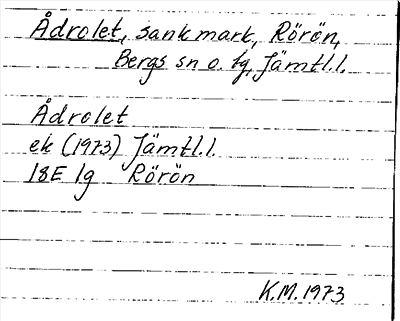 Ådrolet, sank mark, Rörön,
Bergs sn o. tg, Jämtl.l.
Ådrolet
ek (1973) Jämtl.l.
18E 1g Rörön
K.M. 1973